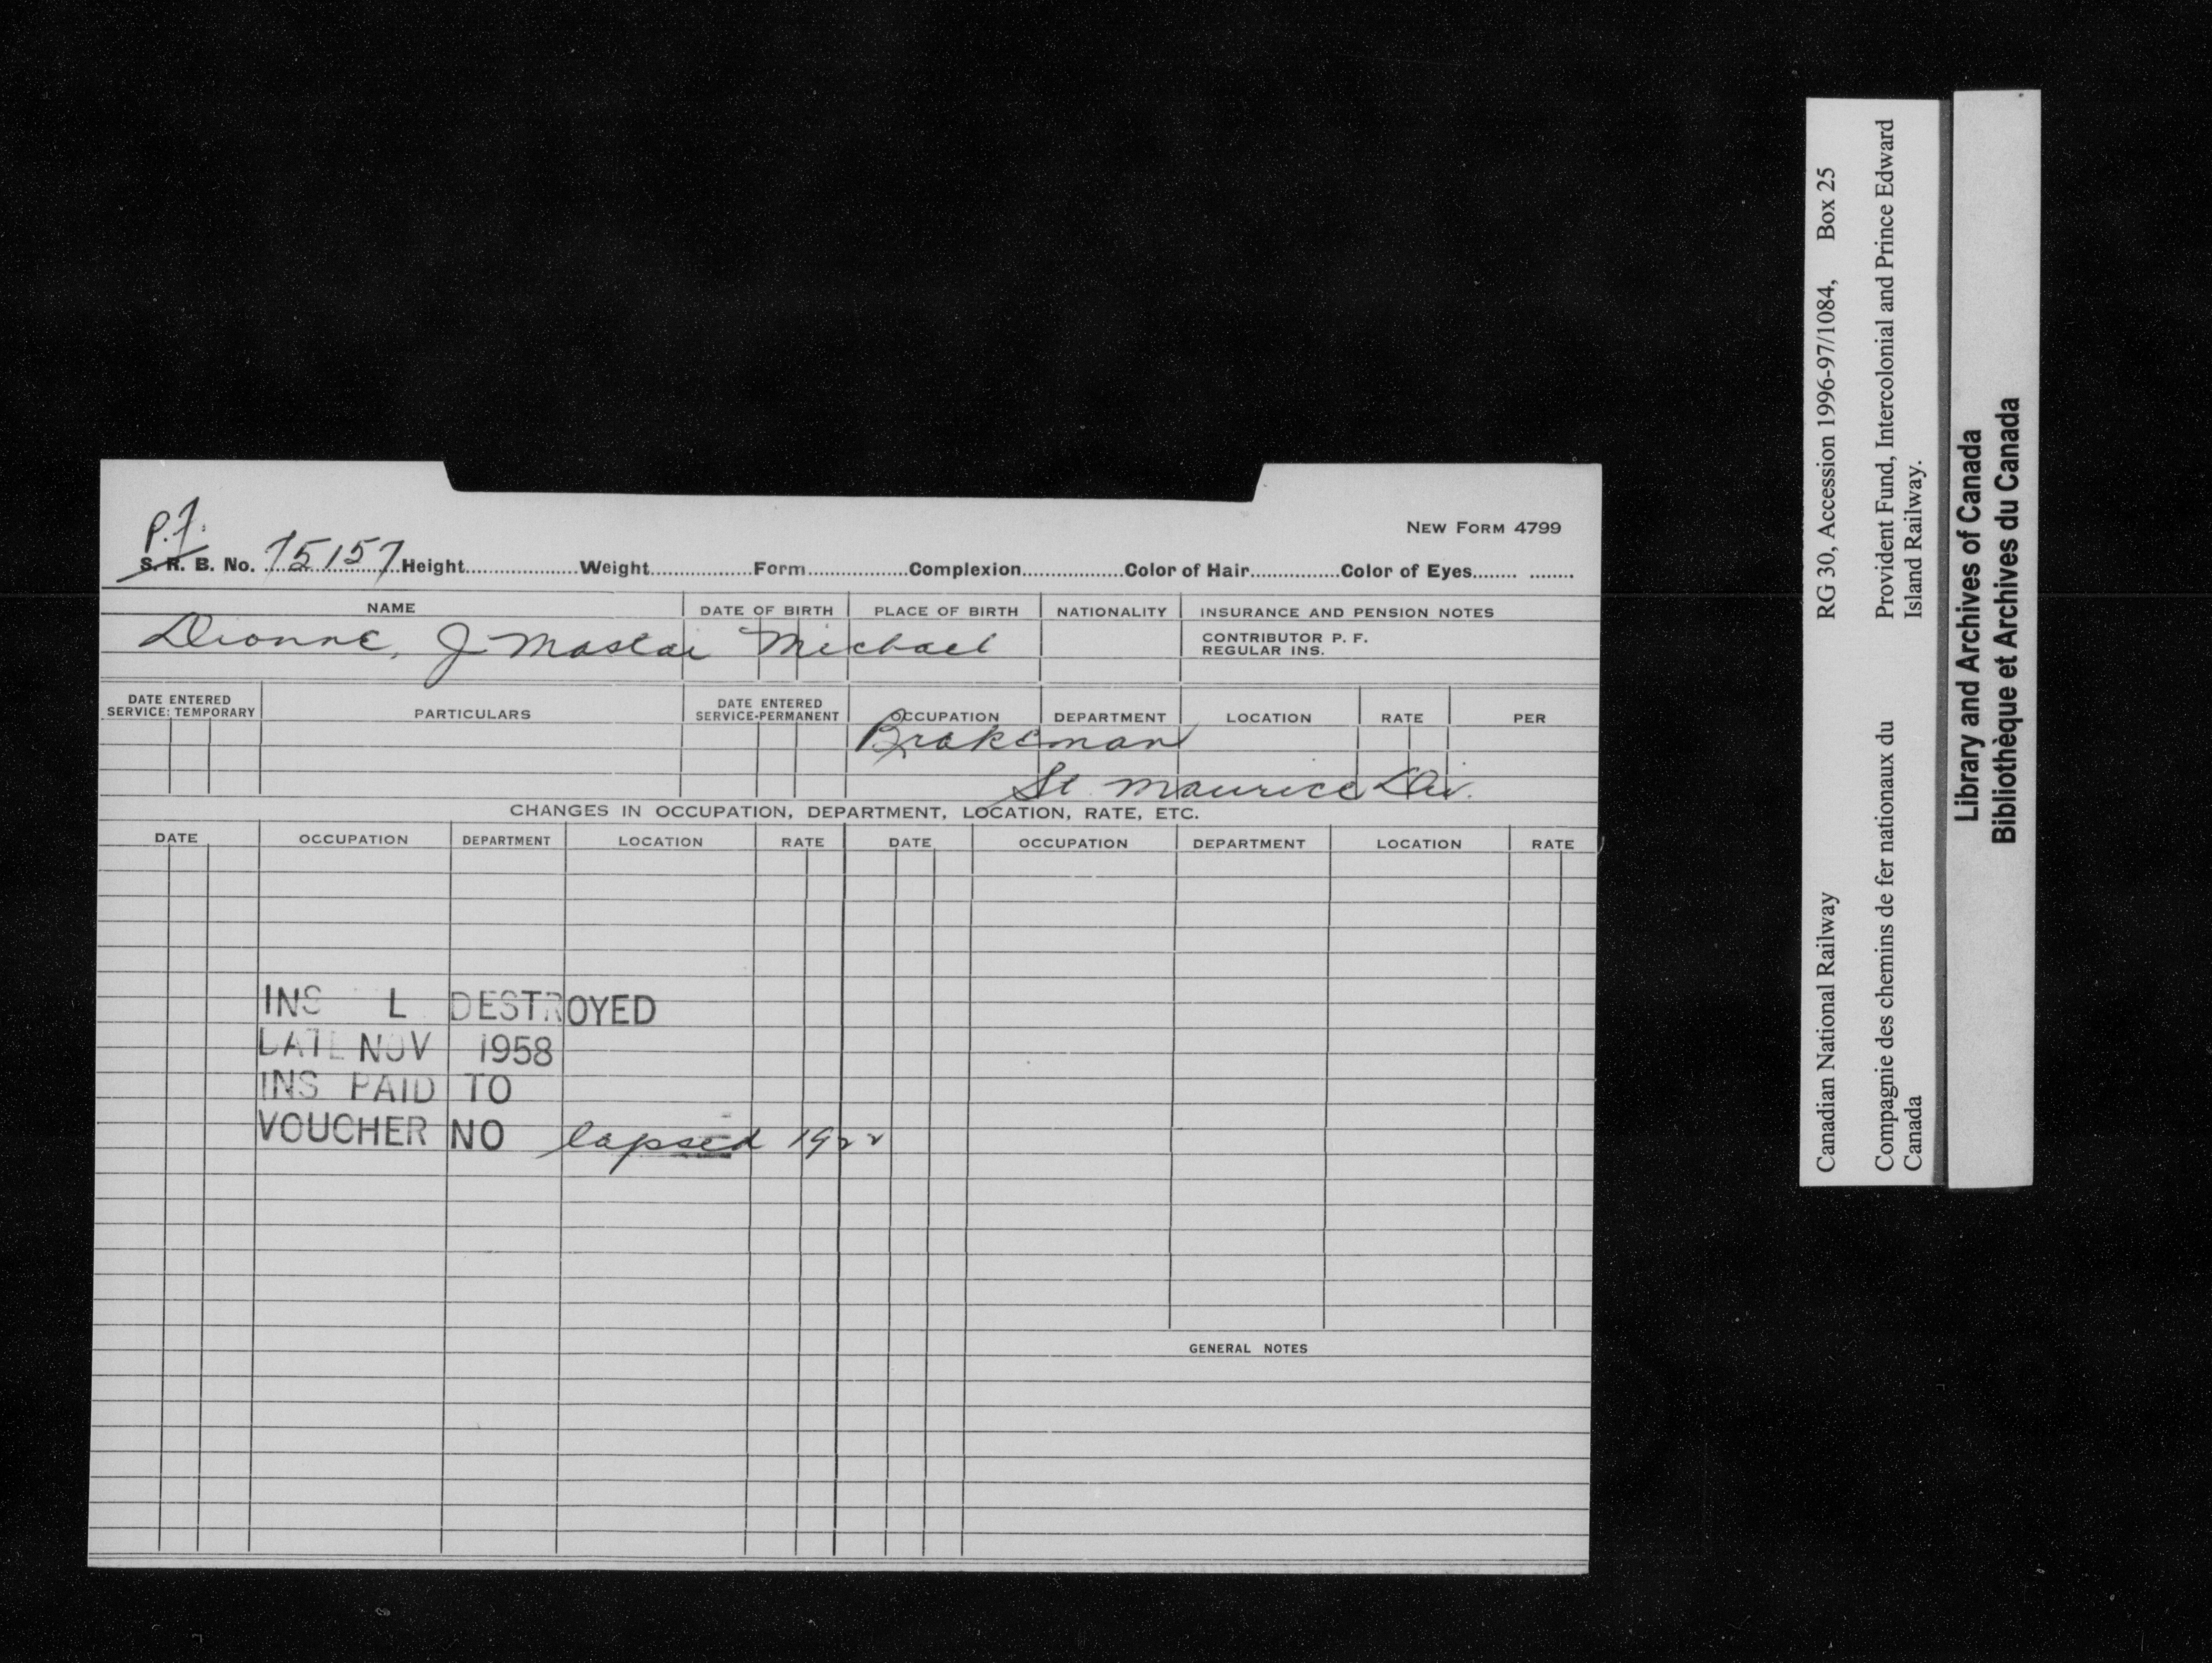 NEW FORM 4799
P.F.
S. R. B. No. 75157 Height Weight Form Complexion Color of Hair Color of Eyes
NAME DATE OF BIRTH PLACE OF BIRTH NATIONALITY INSURANCE AND PENSION NOTES
Dionne, J Maslai Michael
CONTRIBUTOR P. F.
REGULAR INS.
DATE ENTERED SERVICE: TEMPORARY PARTICULARS DATE ENTERED SERVICE-PERMANENT OCCUPATION DEPARTMENT LOCATION RATE PER
Brakeman
St Maurice Div.
CHANGES IN OCCUPATION, DEPARTMENT, LOCATION, RATE, ETC.
DATE OCCUPATION DEPARTMENT LOCATION RATE DATE OCCUPATION DEPARTMENT LOCATION RATE
INS L DESTROYED
DATE NOV 1958
INS PAID TO
VOUCHER NO lapsed 1922
GENERAL NOTES
Canadian National Railway RG 30, Accession 1996-97/1084, Box 25
Compagnie des chemins de fer nationaux du Provident Fund, Intercolonial and Prince Edward
Canada Island Railway.
Library and Archives of Canada
Bibliothèque et Archives du Canada